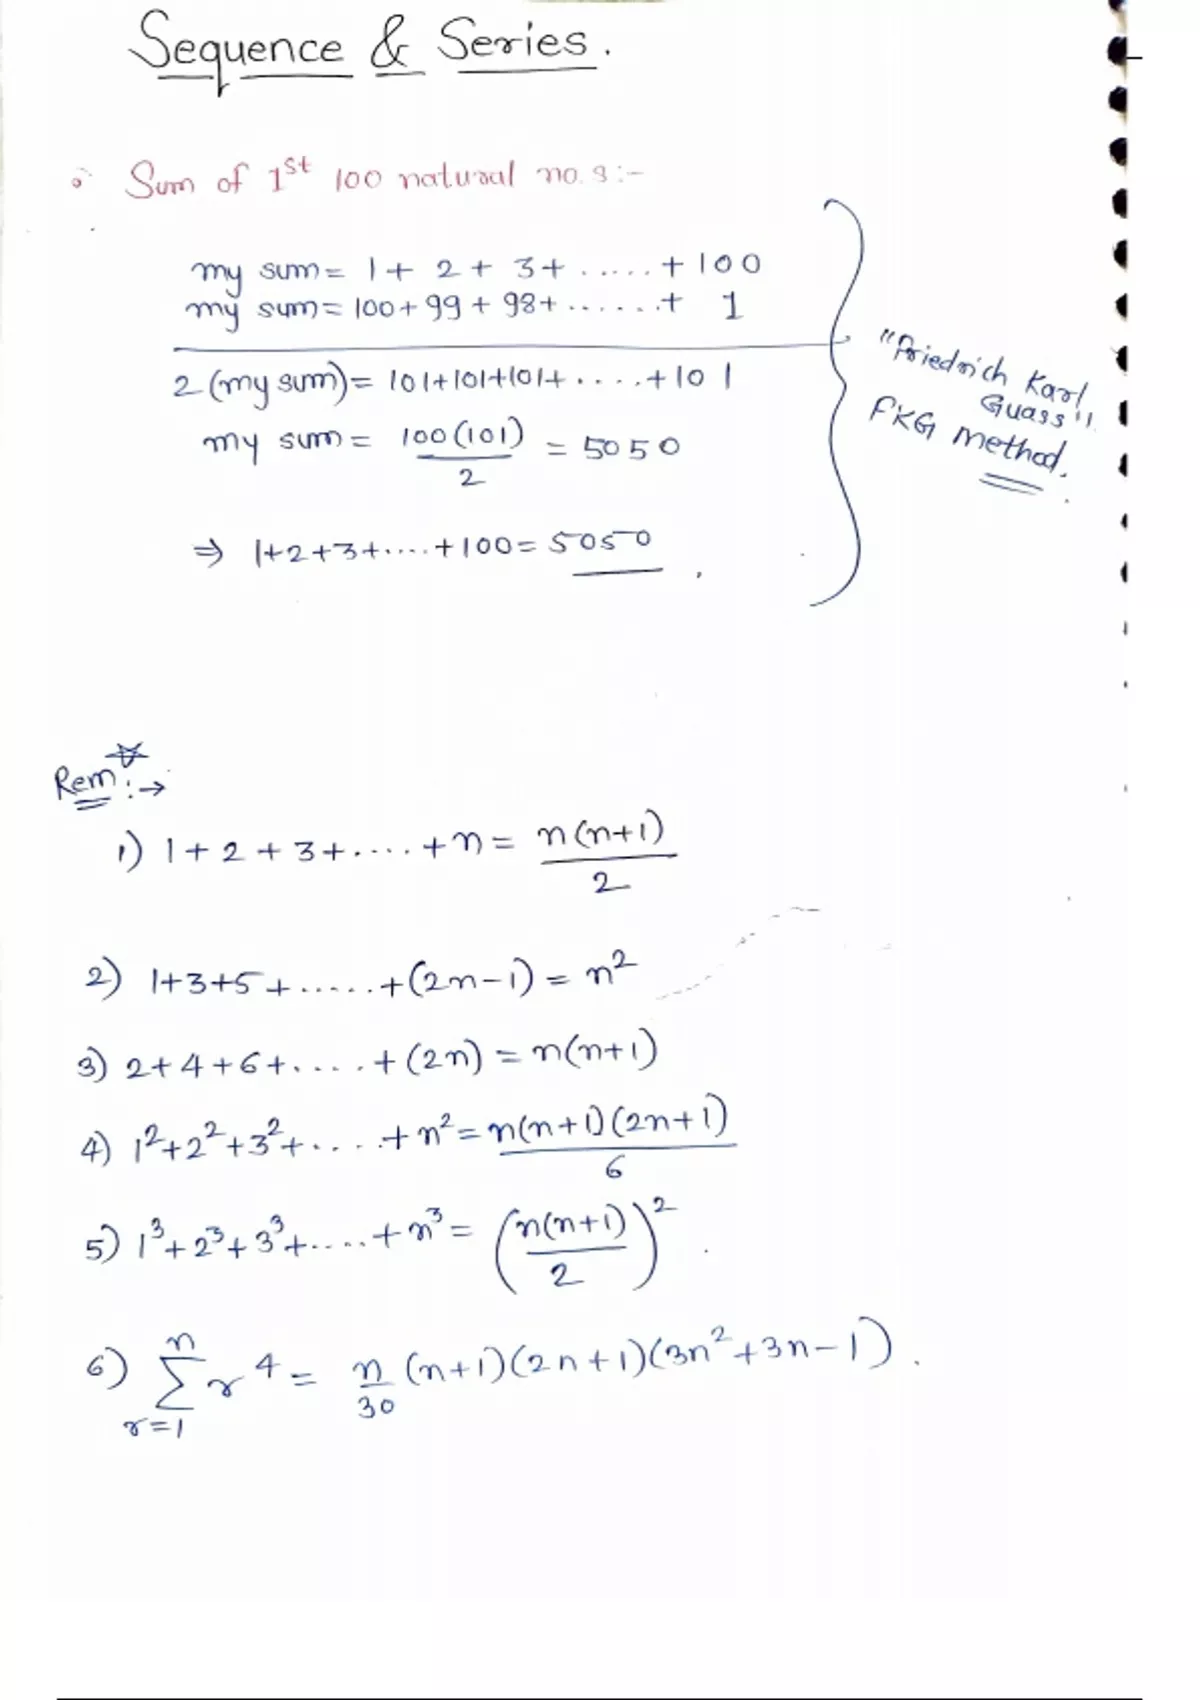 Sequence & Series.
Sum of 1st 100 natural no.s:-
my sum = 1 + 2 + 3 + ...... + 100
my sum = 100 + 99 + 98 + ....... + 1
2 (my sum) = 101+101+101+ ..... + 101
my sum = 100(101)/2 = 5050
⇒ 1+2+3+.....+100 = 5050.
"Friedrich Karl
Guass".
FKG method.
Rem ☆ :→
1) 1 + 2 + 3 + ..... + n = n(n+1)/2
2) 1+3+5+......+(2n-1) = n²
3) 2+4+6+.....+(2n) = n(n+1)
4) 1²+2²+3²+.....+n² = n(n+1)(2n+1)/6
5) 1³+2³+3³+.....+n³ = (n(n+1)/2)².
6) ∑_{r=1}^{n} r⁴ = n/30 (n+1)(2n+1)(3n²+3n-1).